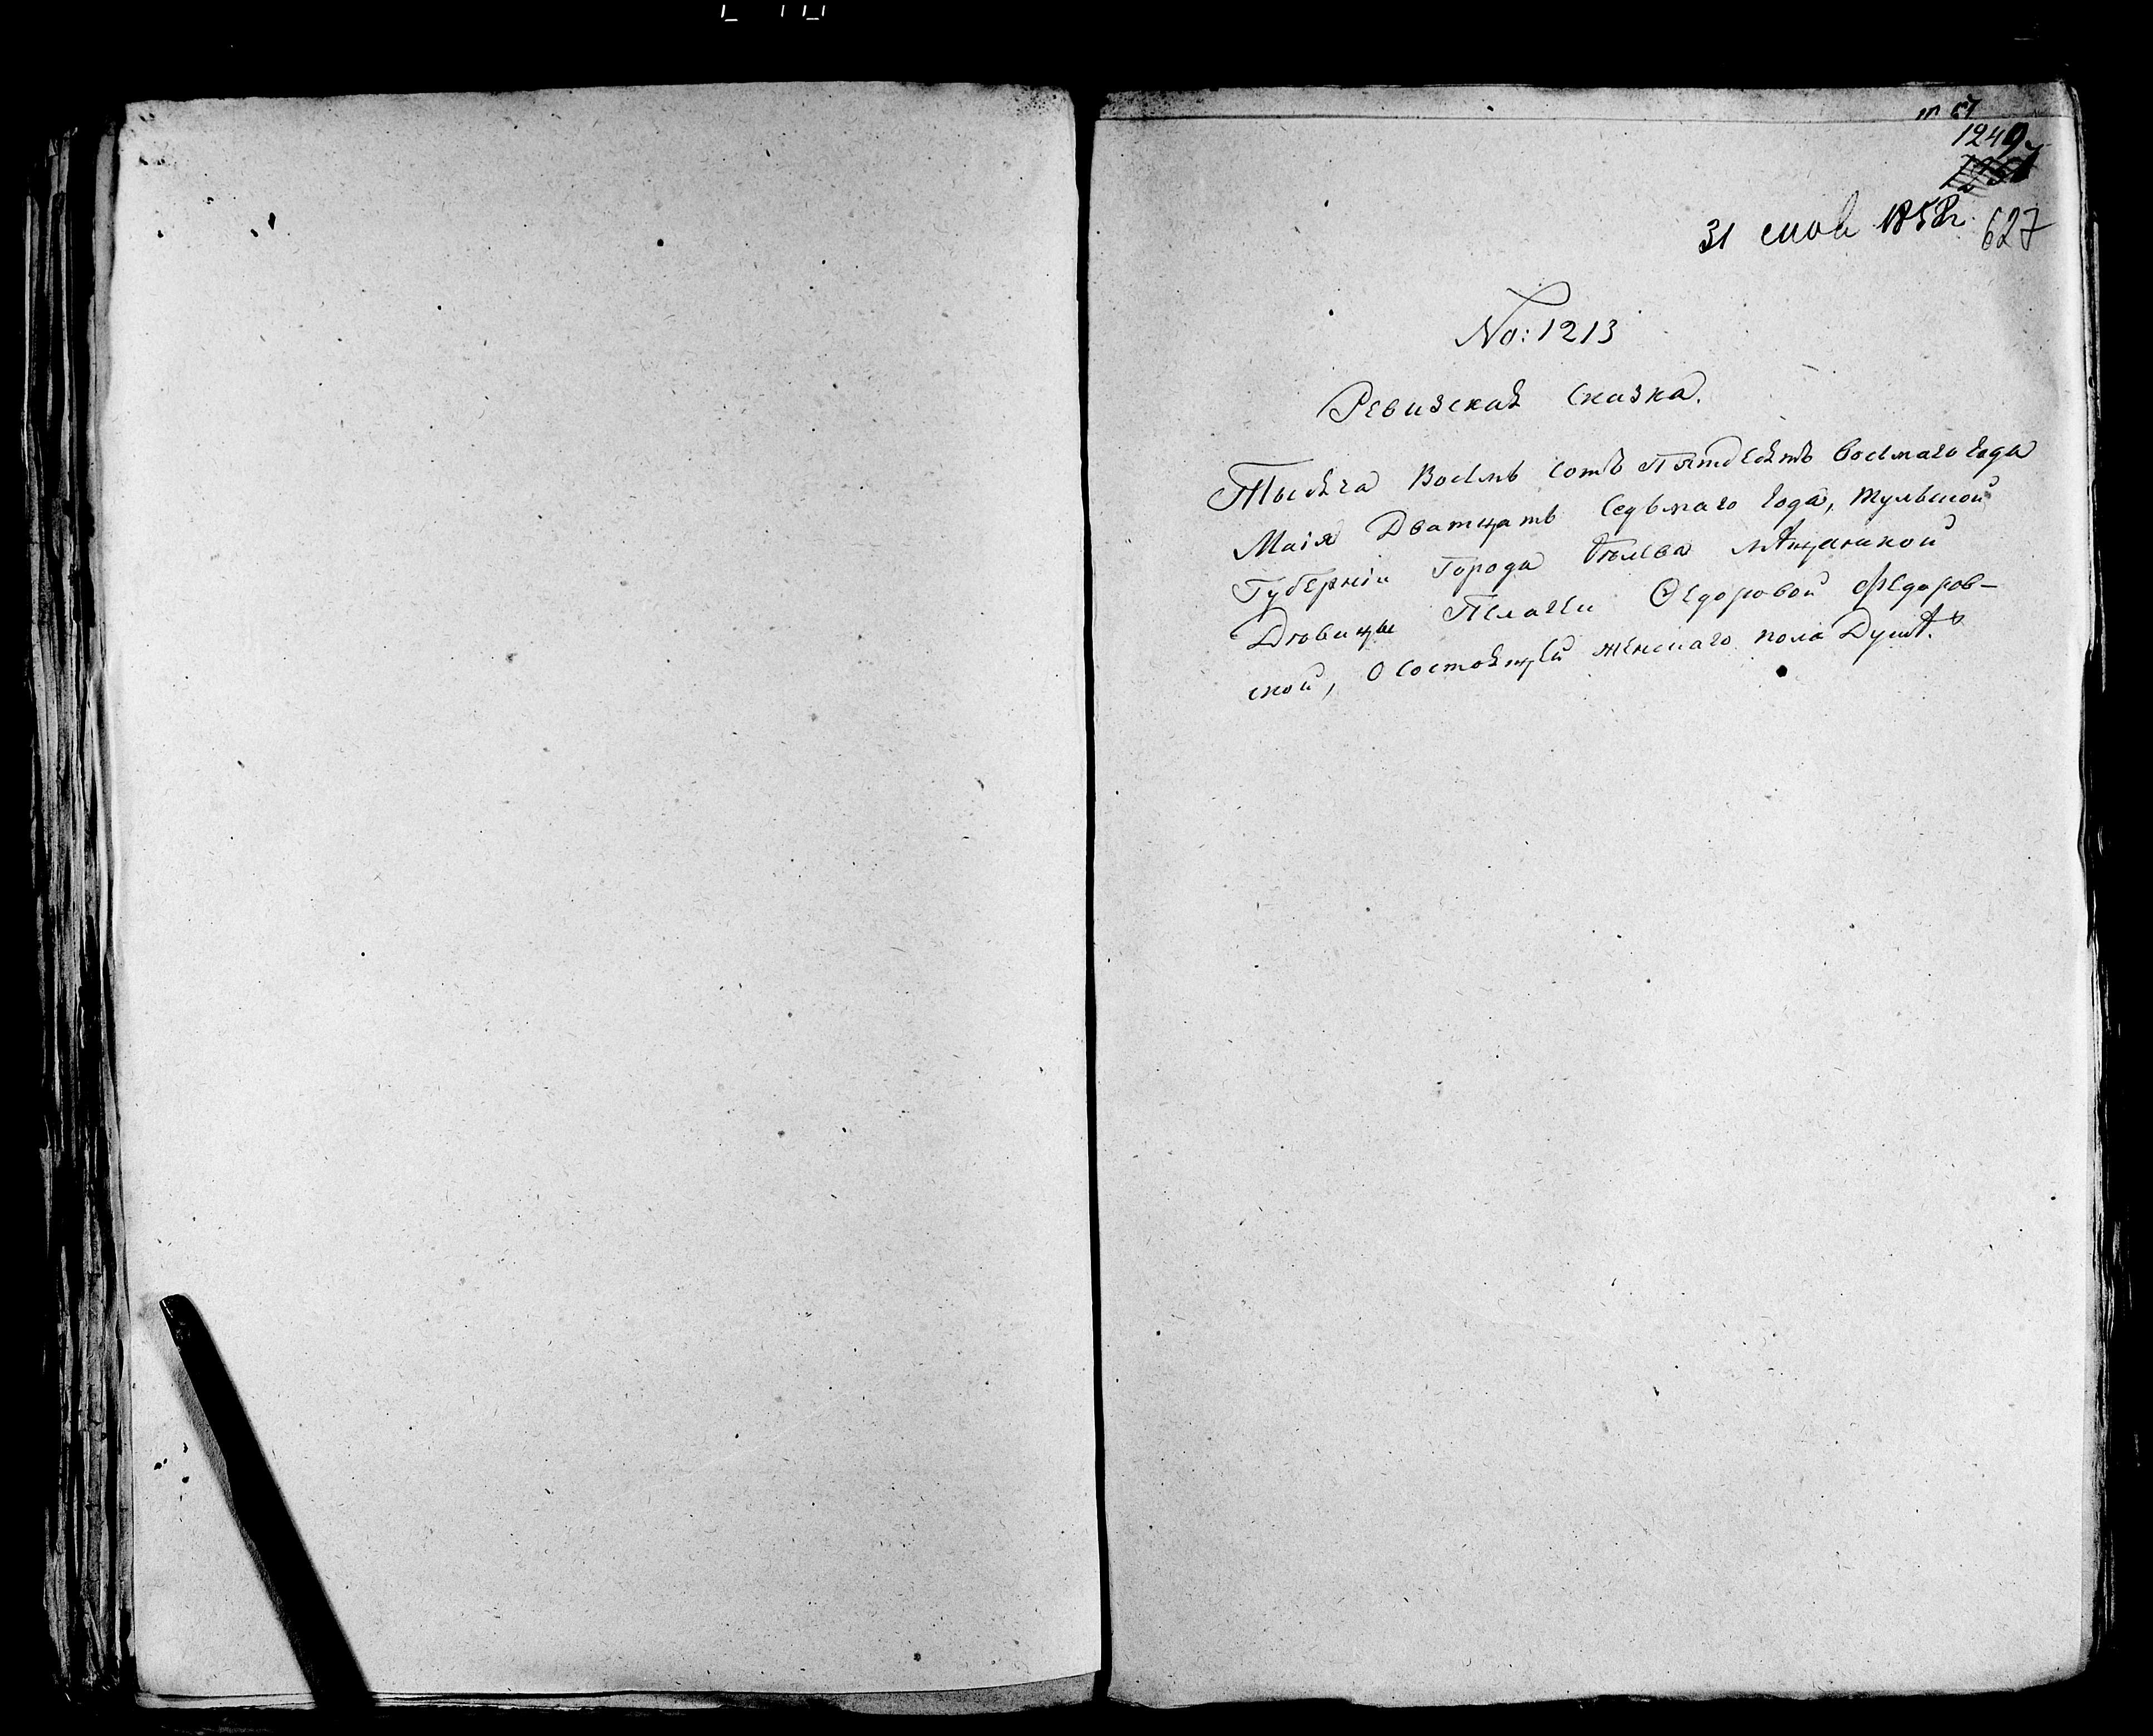 1249
31 мая 1858 г. 627
No: 1213
Ревизская Сказка.
Тысяча Восемь сотъ Пятдесятъ Восемаго года
Маія Дватцать Седьмаго года, Тульской
Губерніи Города Бѣлева мѣщанской
Дѣвицы Пелагеи Ѳедоровой Федоров-
ской, О состоящей женскаго пола Душѣ.